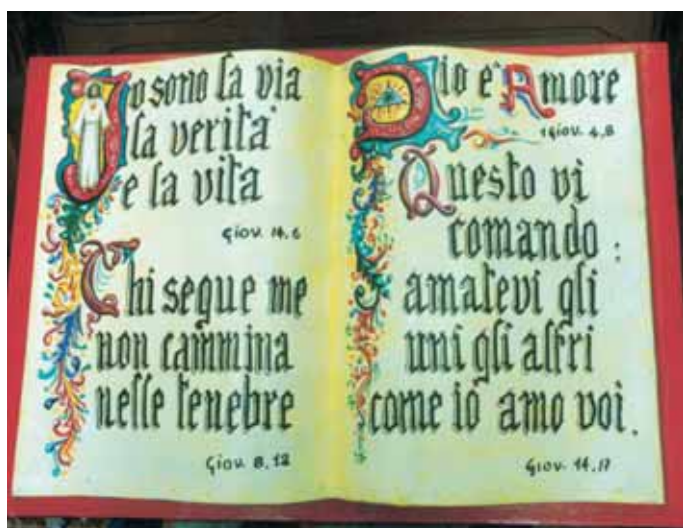 Io sono la via
la verita'
e la vita
Giov. 14.6
Chi segue me
non cammina
nelle tenebre
Giov. 8,12
Dio e' Amore
1 Giov. 4,8
Questo vi
comando:
amatevi gli
uni gli altri
come io amo voi.
Giov. 14,17